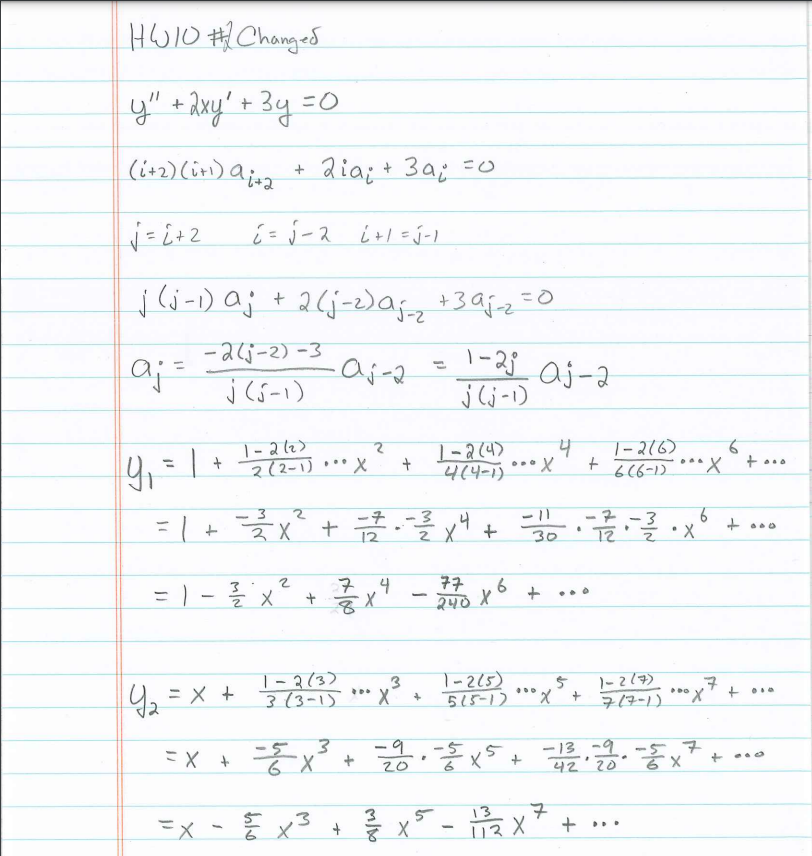 HW10 #2 Changed
y'' + 2xy' + 3y = 0
(i+2)(i+1) a_{i+2} + 2i a_i + 3a_i = 0
j = i+2   i = j-2   i+1 = j-1
j(j-1) a_j + 2(j-2) a_{j-2} + 3a_{j-2} = 0
a_j = \frac{-2(j-2)-3}{j(j-1)} a_{j-2} = \frac{1-2j}{j(j-1)} a_{j-2}
y_1 = 1 + \frac{1-2(2)}{2(2-1)} ··· x^2 + \frac{1-2(4)}{4(4-1)} ··· x^4 + \frac{1-2(6)}{6(6-1)} ··· x^6 + ···
= 1 + \frac{-3}{2} x^2 + \frac{-7}{12} · \frac{-3}{2} x^4 + \frac{-11}{30} · \frac{-7}{12} · \frac{-3}{2} · x^6 + ···
= 1 - \frac{3}{2} x^2 + \frac{7}{8} x^4 - \frac{77}{240} x^6 + ···
y_2 = x + \frac{1-2(3)}{3(3-1)} ··· x^3 + \frac{1-2(5)}{5(5-1)} ··· x^5 + \frac{1-2(7)}{7(7-1)} ··· x^7 + ···
= x + \frac{-5}{6} x^3 + \frac{-9}{20} · \frac{-5}{6} x^5 + \frac{-13}{42} · \frac{-9}{20} · \frac{-5}{6} x^7 + ···
= x - \frac{5}{6} x^3 + \frac{3}{8} x^5 - \frac{13}{112} x^7 + ···